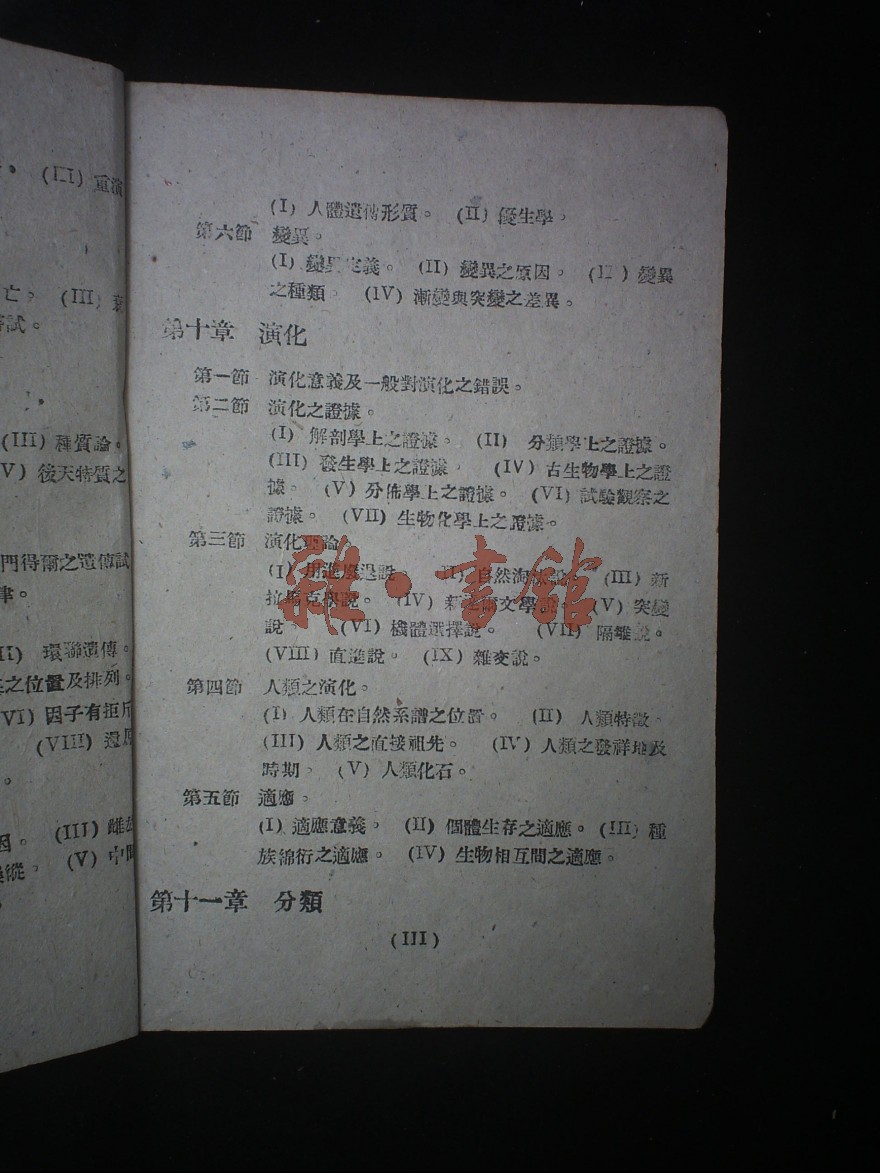 (III) 重演
亡。 (III)
試。
(III) 種質論。
V) 後天特質之
門得爾之遺傳試
律。
II) 環聯遺傳。
之位置及排列。
VI) 因子有拒斥
(VIII) 還原
因。 (III) 雌雄
縱。 (V) 中間
(I) 人體遺傳形質。 (II) 優生學。
第六節 變異。
(I) 變異定義。 (II) 變異之原因。 (III) 變異
之種類。 (IV) 漸變與突變之差異。
第十章 演化
第一節 演化意義及一般對演化之錯誤。
第二節 演化之證據。
(I) 解剖學上之證據。 (II) 分類學上之證據。
(III) 發生學上之證據。 (IV) 古生物學上之證
據。 (V) 分佈學上之證據。 (VI) 試驗觀察之
證據。 (VII) 生物化學上之證據。
第三節 演化理論
(I) 用進廢退說。 (II) 自然淘汰說。 (III) 新
拉馬克學說。 (IV) 新達爾文學說。 (V) 突變
說 (VI) 機體選擇說。 (VII) 隔離說。
(VIII) 直進說。 (IX) 雜交說。
第四節 人類之演化。
(I) 人類在自然系譜之位置。 (II) 人類特徵。
(III) 人類之直接祖先。 (IV) 人類之發祥地及
時期。 (V) 人類化石。
第五節 適應。
(I) 適應意義。 (II) 個體生存之適應。 (III) 種
族綿衍之適應。 (IV) 生物相互間之適應。
第十一章 分類
(III)
雜·書館